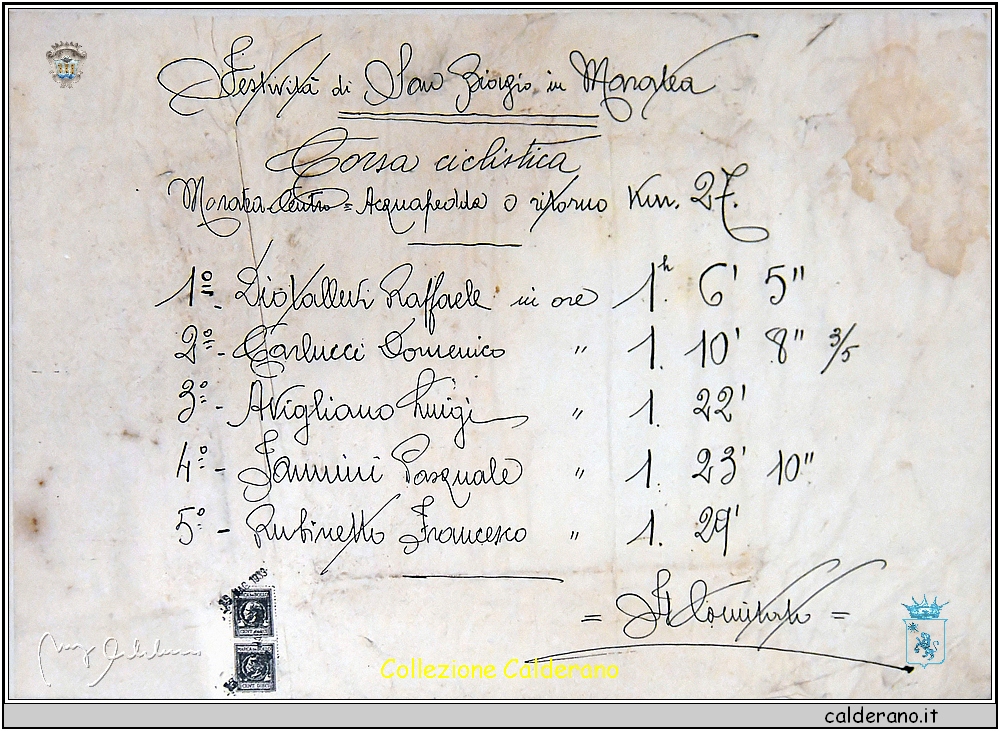 Festività di San Giorgio in Maratea
Corsa ciclistica
Maratea Centro = Acquafredda e ritorno Km. 27.
1º - Diovalleri Raffaele in ore 1h. 6' 5"
2º - Carlucci Domenico " 1. 10' 8" 3/5
3º - Avigliano Luigi " 1. 22'
4º - Iannini Pasquale " 1. 23' 10"
5º - Rubinetto Francesco " 1. 29'
= Il Comitato =
1933
Collezione Calderano
calderano.it